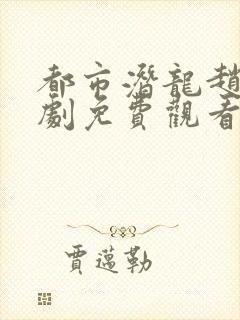 都市潛龍趙
劇免費觀看
賈邁勒